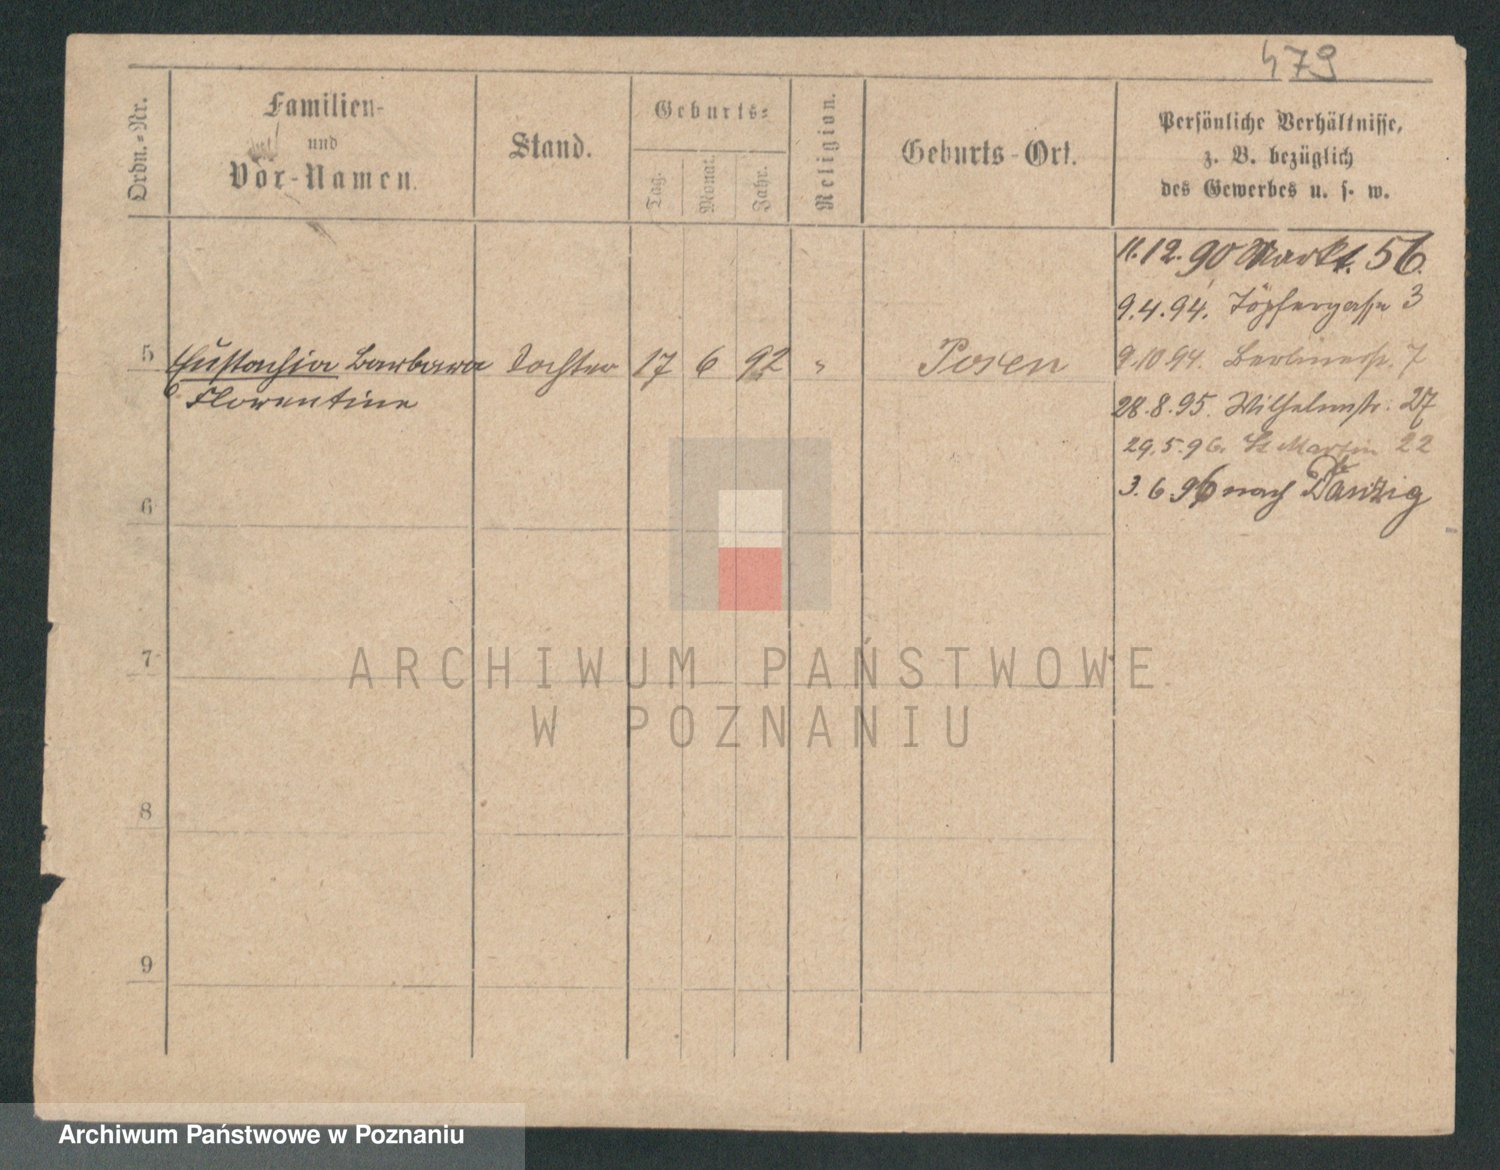 479
Ordn.-Nr.
Familien-
und
Vor-Namen.
Stand.
Geburts-
Tag.
Monat.
Jahr.
Religion.
Geburts-Ort.
Persönliche Verhältnisse,
z. B. bezüglich
des Gewerbes u. s. w.
11.12.90 Markt. 56.
9.4.94. Töpfergasse 3
5 Eustachia Barbara Tochter 17 6 92 " Posen
9.10.94. Berlinerstr. 7
Florentine
28.8.95. Wilhelmstr. 27
29.5.96. St Martin 22
3.6.96 nach Danzig
6
7
8
9
ARCHIWUM PAŃSTWOWE
W POZNANIU
Archiwum Państwowe w Poznaniu